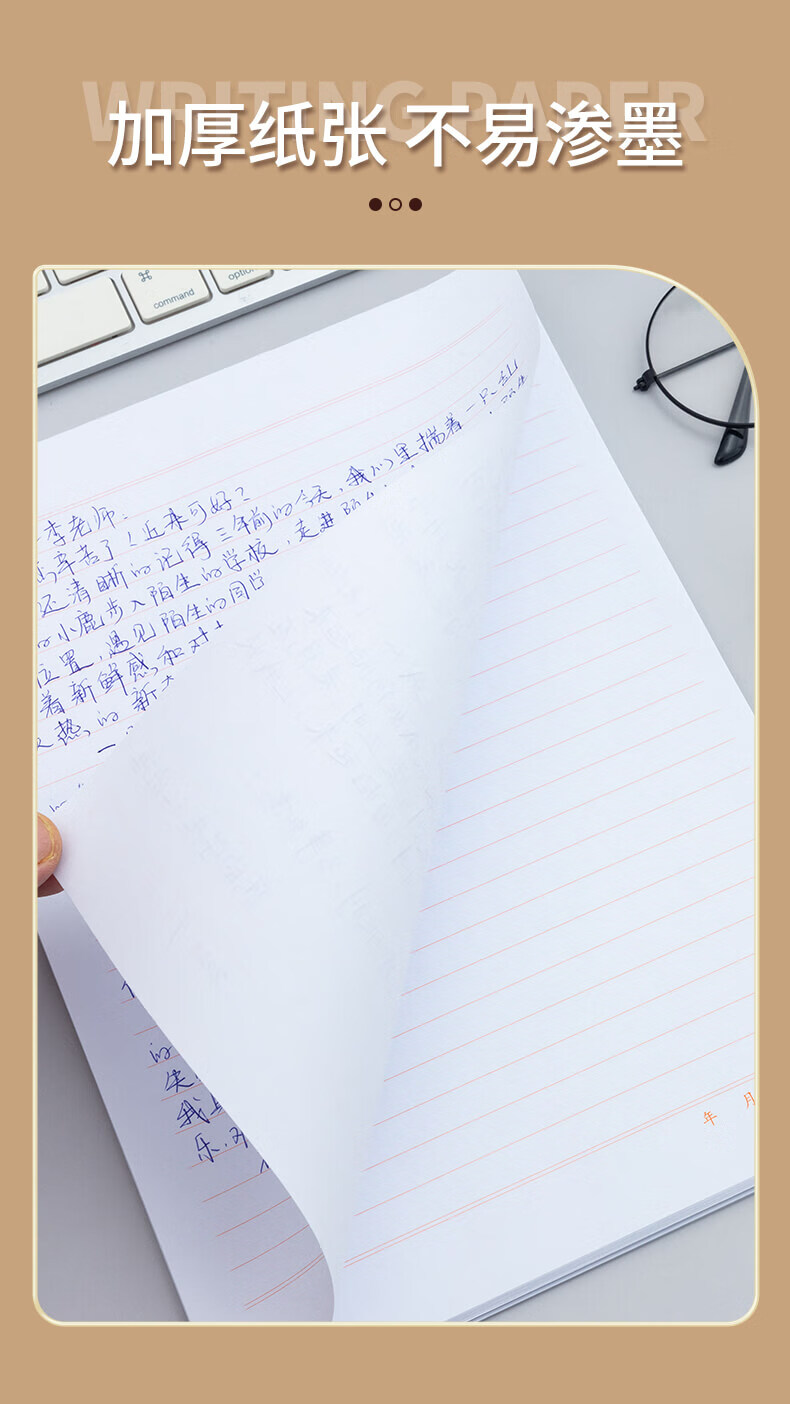 WRITING PAPER
加厚纸张 不易渗墨
command
option
李老师:
辛苦了!近来可好?
还清晰的记得三年前的今天,我心里揣着一只乱
小鹿步入陌生的学校,走进
位置,遇见陌生的同学
着新鲜感和对
热的新
的
失
我
乐.对
年 月